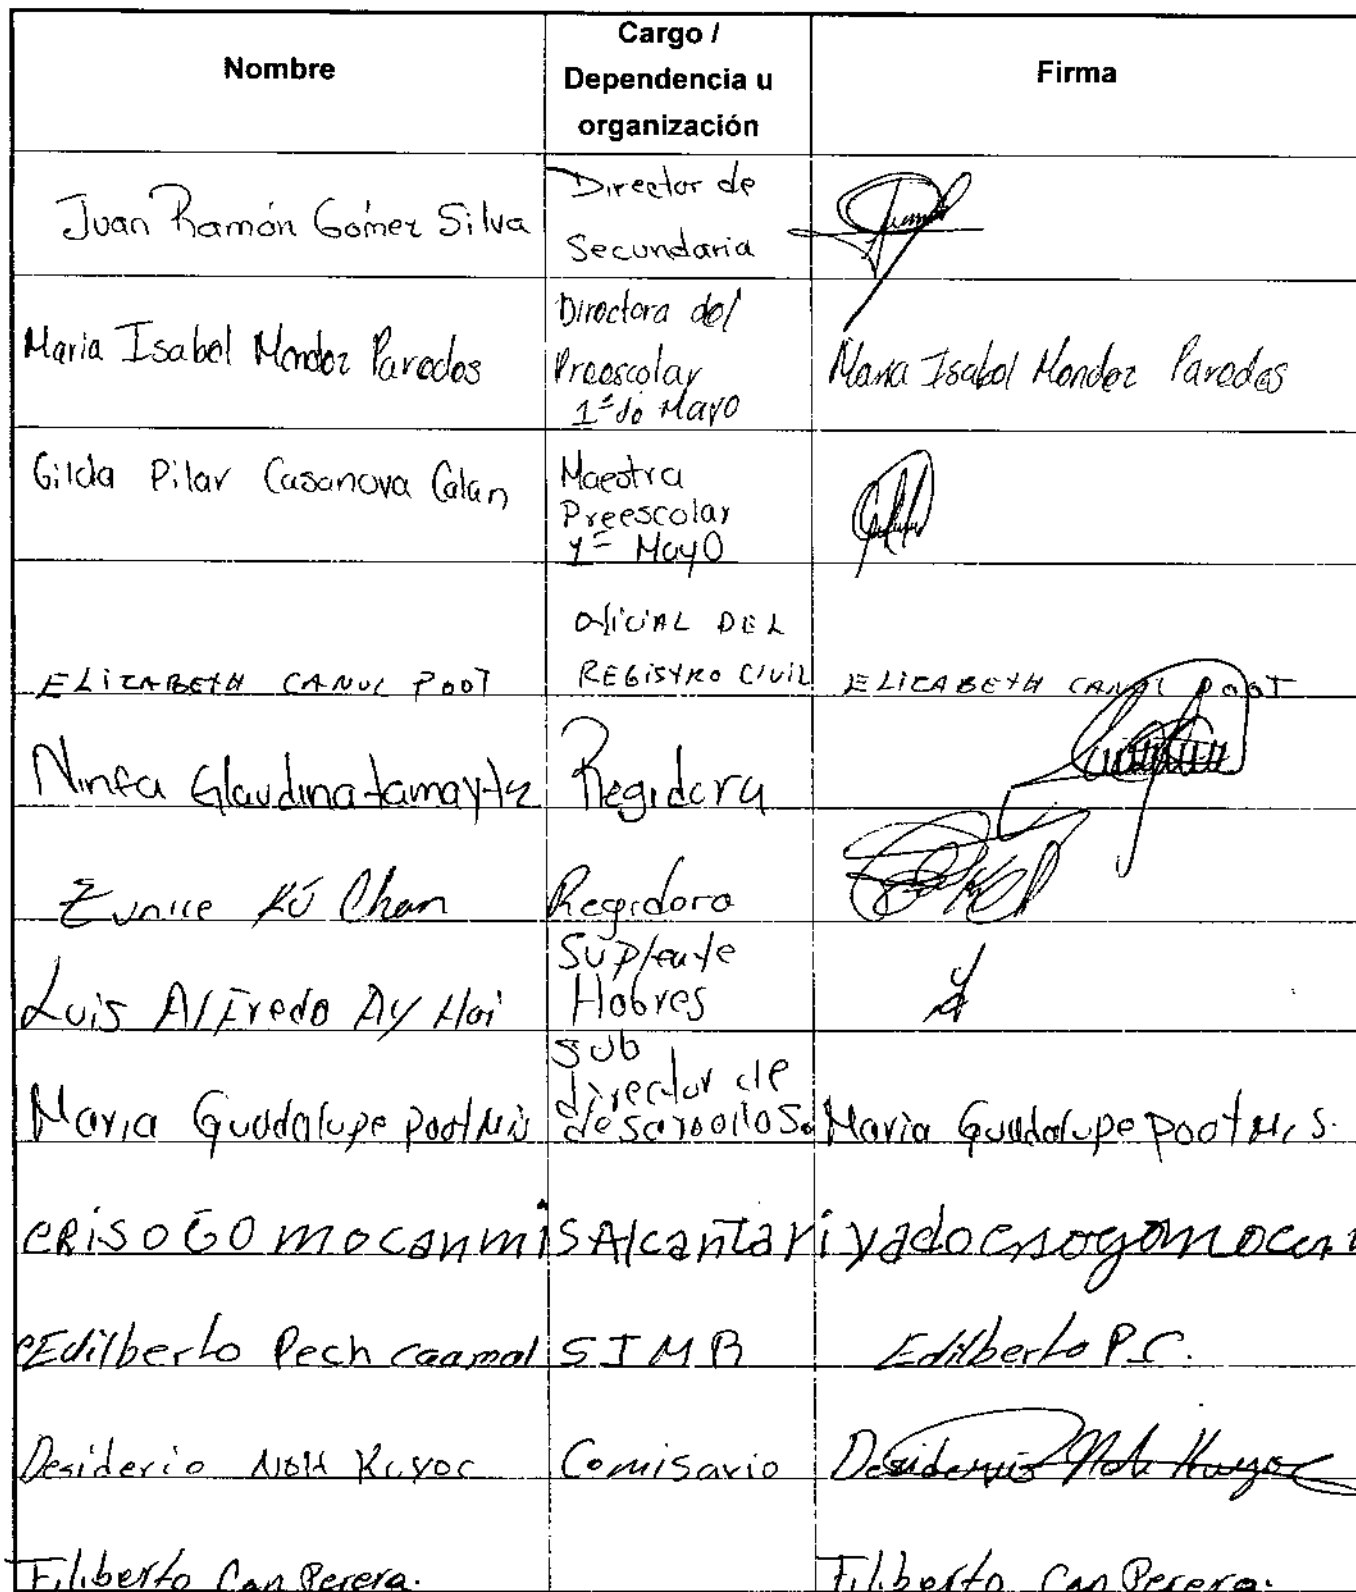 Nombre
Cargo /
Dependencia u
organización
Firma
Juan Ramón Gómez Silva
Director de
Secundaria
Maria Isabel Mendez Paredes
Directora del
Preescolar
1º de Mayo
Maria Isabel Mendez Paredes
Gilda Pilar Casanova Catan
Maestra
Preescolar
1º Mayo
ELIZABETH CANUL POOT
OFICIAL DEL
REGISTRO CIVIL
ELIZABETH CANUL POOT
Ninfa Glaudina tamay tz
Regidora
Eunice Kú Chan
Regidora
Luis Alfredo Ay
Suplente
Hobres
Maria Guadalupe poot Mis
Sub
director de
desarrollo S.
Maria Guadalupe poot M.S.
CRISOGOmocanmis
Alcantariyado
crisogomocan
Edilberto Pech caamal
Edilberto P.C.
Desiderio NOH Kuyoc
Comisario
Desiderio Noh Kuyoc
Filiberto Can Perera.
Filiberto Can Perera.